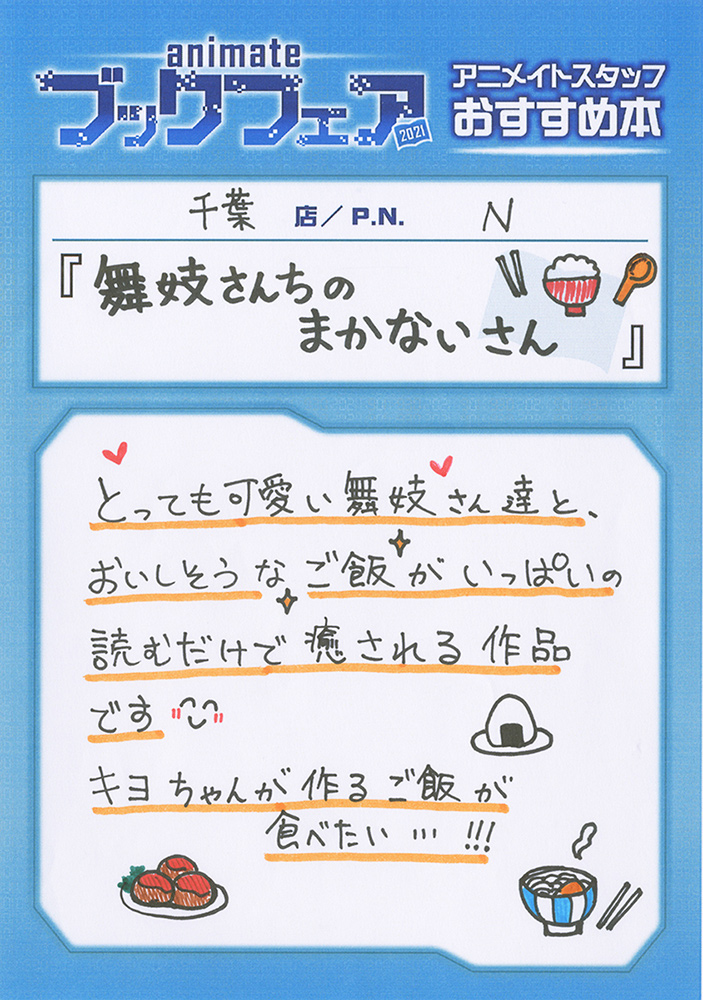 animate
ブックフェア
2021
アニメイトスタッフ
おすすめ本
千葉 店／P.N. N
『舞妓さんちの
まかないさん』
とっても可愛い舞妓さん達と、
おいしそうなご飯がいっぱいの
読むだけで癒される作品
です
キヨちゃんが作るご飯が
食べたい…!!!